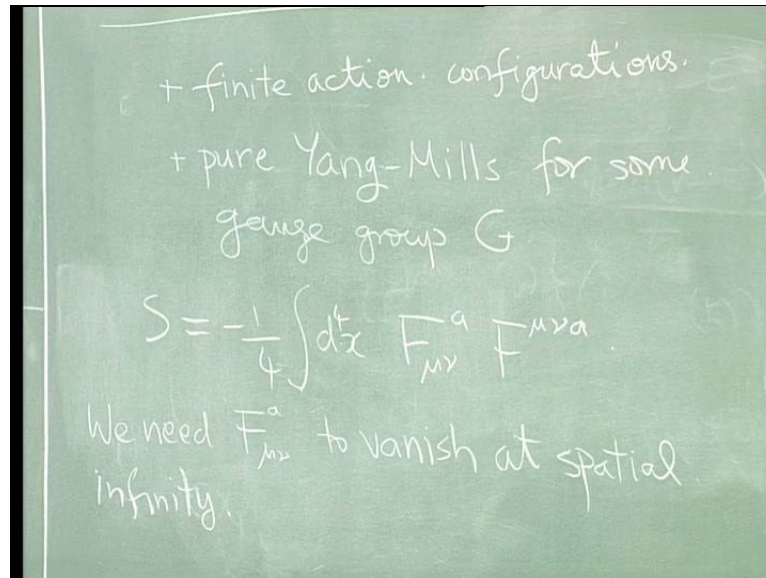 + finite action. configurations.
+ pure Yang-Mills for some.
gauge group G
S = -1/4 ∫d⁴x F^a_μν F^μνa.
We need F^a_μν to vanish at spatial.
infinity.